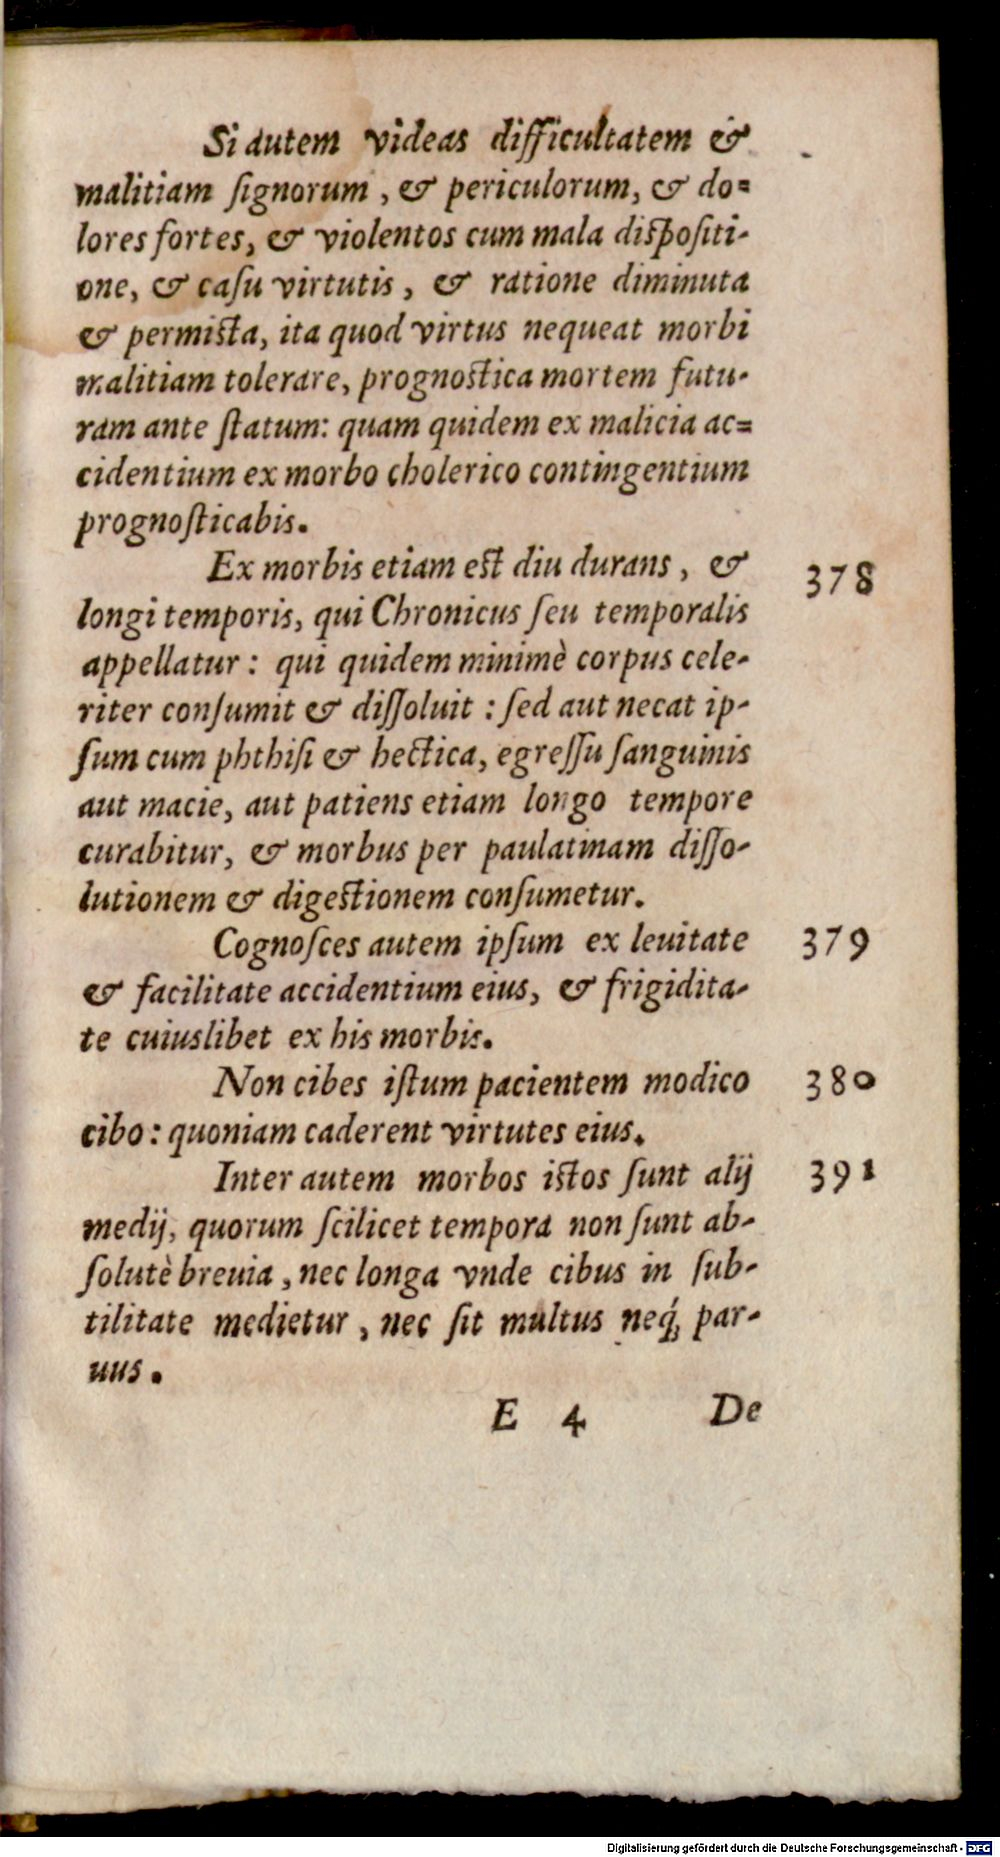 Si autem videas difficultatem &
malitiam ſignorum, & periculorum, & do=
lores fortes, & violentos cum mala diſpoſiti-
one, & caſu virtutis, & ratione diminuta
& permiſta, ita quod virtus nequeat morbi
malitiam tolerare, prognoſtica mortem futu-
ram ante ſtatum: quam quidem ex malicia ac=
cidentium ex morbo cholerico contingentium
prognoſticabis.
Ex morbis etiam eſt diu durans, & 378
longi temporis, qui Chronicus ſeu temporalis
appellatur: qui quidem minimè corpus cele-
riter conſumit & diſſoluit: ſed aut necat ip-
ſum cum phthiſi & hectica, egreſſu ſanguinis
aut macie, aut patiens etiam longo tempore
curabitur, & morbus per paulatinam diſſo-
lutionem & digeſtionem conſumetur.
Cognoſces autem ipſum ex leuitate 379
& facilitate accidentium eius, & frigidita-
te cuiuslibet ex his morbis.
Non cibes iſtum pacientem modico 380
cibo: quoniam caderent virtutes eius.
Inter autem morbos iſtos ſunt alij 391
medij, quorum ſcilicet tempora non ſunt ab-
ſolutè breuia, nec longa vnde cibus in ſub-
tilitate medietur, nec ſit multus neq́; par-
uus.
E 4 De
Digitalisierung gefördert durch die Deutsche Forschungsgemeinschaft - DFG